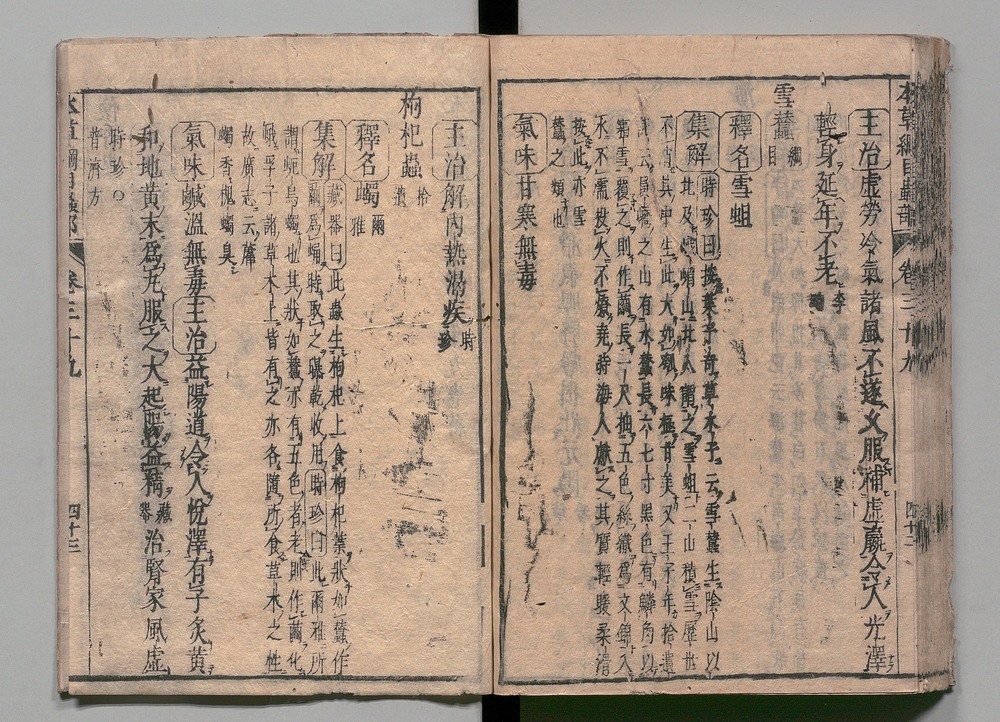 本草綱目蟲部 卷三十九 四十二
主治虛勞冷氣諸風不遂久服補虛羸令人光澤
輕身延年不老
雪蠶 綱目
釋名雪蛆
集解時珍曰按葉子奇草木子云雪蠶生陰山以
北及峨嵋山北人謂之雪蛆二山積雪歷世
不消其中生此大如瓠味極甘美又王子年拾遺
記云員嶠之山有冰蠶長六七寸黑色有鱗角以
霜雪覆之則作繭長一尺抽五色絲織爲文錦入
水不濡投火不燎堯時海人獻之其質輕暖柔滑
按此亦雪
蠶之類也
氣味甘寒無毒
主治解內熱渴疾時珍
枸杞蟲 拾遺
釋名蠋爾雅
集解藏器曰此蟲生枸杞上食枸杞葉狀如蠶作
繭爲蛹時取之曝乾收用時珍曰此爾雅所
謂蚅烏蠋也其狀如蠶亦有五色者老則作繭化
蛾孚子諸草木上皆有之亦各隨所食草木之性
故廣志云藿
蠋香槐蠋臭
氣味鹹溫無毒主治益陽道令人悅澤有子炙黃
和地黃末爲丸服之大起陽益精藏器治腎家風虛
時珍○
普濟方
本草綱目蟲部 卷三十九 四十三